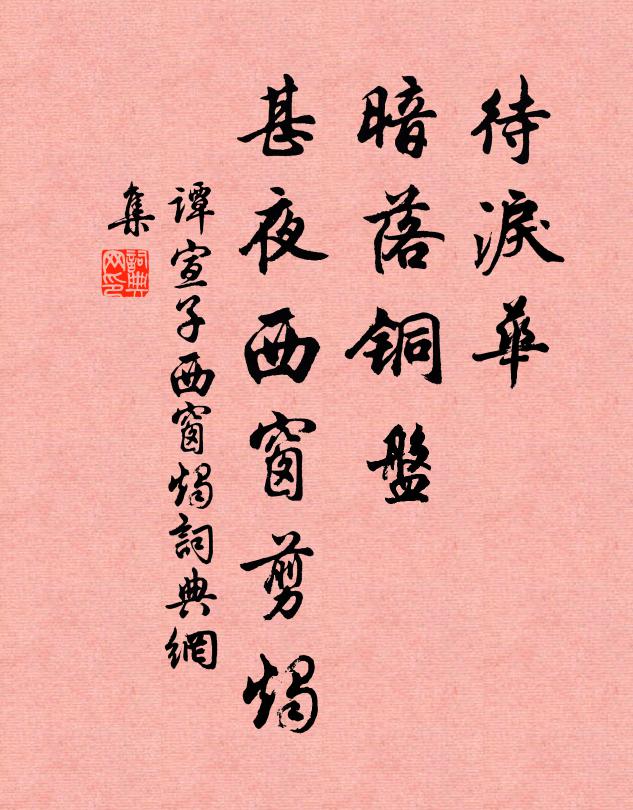 待淚華
暗落銅盤
甚夜西窗剪燭
譚宣子西窗燭詞典網
集
詞典
网印